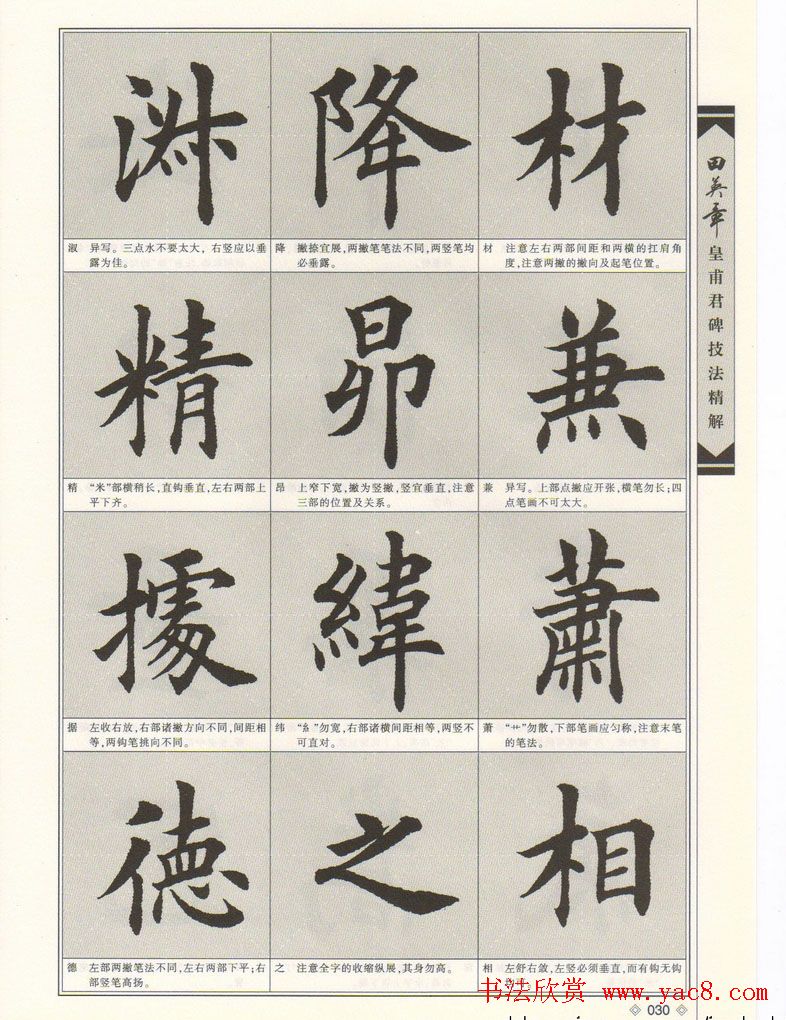 材
降
淑
材 注意左右两部间距和两横的扛肩角
度,注意两撇的撇向及起笔位置。
降 撇捺宜展,两撇笔笔法不同,两竖笔均
必垂露。
淑 异写。三点水不要太大,右竖应以垂
露为佳。
兼
昂
精
兼 异写。上部点撇应开张,横笔勿长;四
点笔画不可太大。
昂 上窄下宽,撇为竖撇,竖宜垂直,注意
三部的位置及关系。
精 “米”部横稍长,直钩垂直,左右两部上
平下齐。
蕭
緯
據
萧 “艹”勿散,下部笔画应匀称,注意末笔
的笔法。
纬 “糹”勿宽,右部诸横间距相等,两竖不
可直对。
据 左收右放,右部诸撇方向不同,间距相
等,两钩笔挑向不同。
相
之
德
相 左舒右敛,左竖必须垂直,而有钩无钩
之 注意全字的收缩纵展,其身勿高。
德 左部两撇笔法不同,左右两部下平;右
部竖笔高扬。
田英章
皇甫君碑技法精解
书法欣赏 www.yac8.com
030